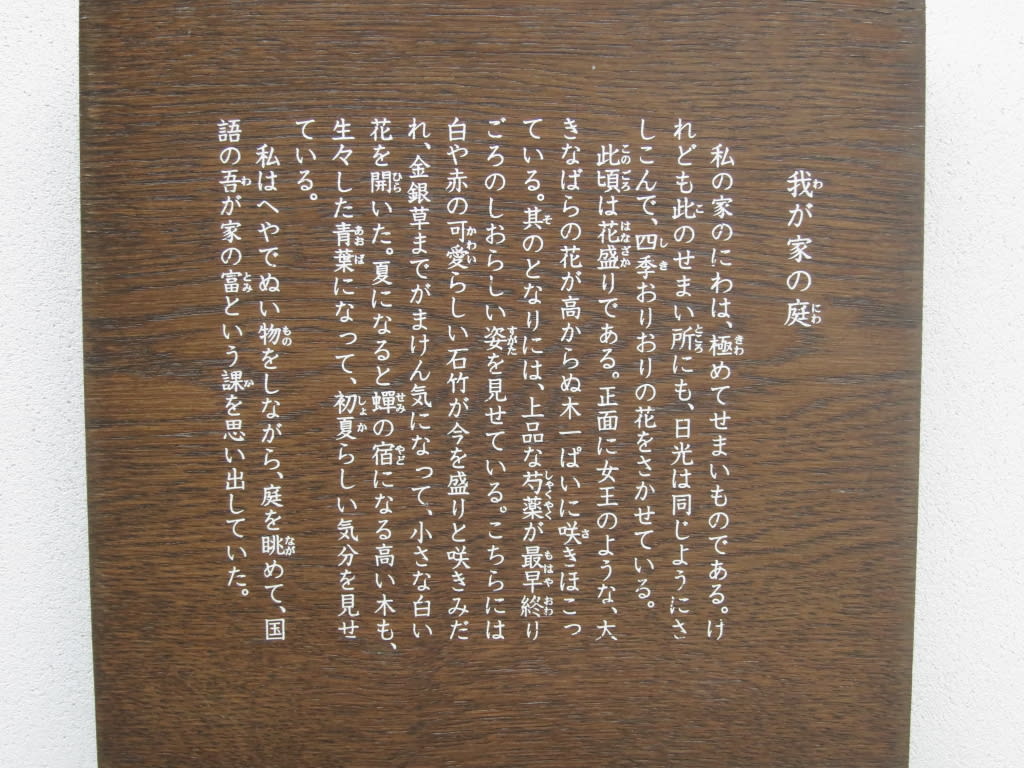 我が家の庭
私の家のにわは、極めてせまいものである。け
れども此のせまい所にも、日光は同じようにさ
しこんで、四季おりおりの花をさかせている。
此頃は花盛りである。正面に女王のような、大
きなばらの花が高からぬ木一ぱいに咲きほこっ
ている。其のとなりには、上品な芍薬が最早終り
ごろのしおらしい姿を見せている。こちらには
白や赤の可愛らしい石竹が今を盛りと咲きみだ
れ、金銀草までがまけん気になって、小さな白い
花を開いた。夏になると蟬の宿になる高い木も、
生々した青葉になって、初夏らしい気分を見せ
ている。
私はへやでぬい物をしながら、庭を眺めて、国
語の吾が家の富という課を思い出していた。